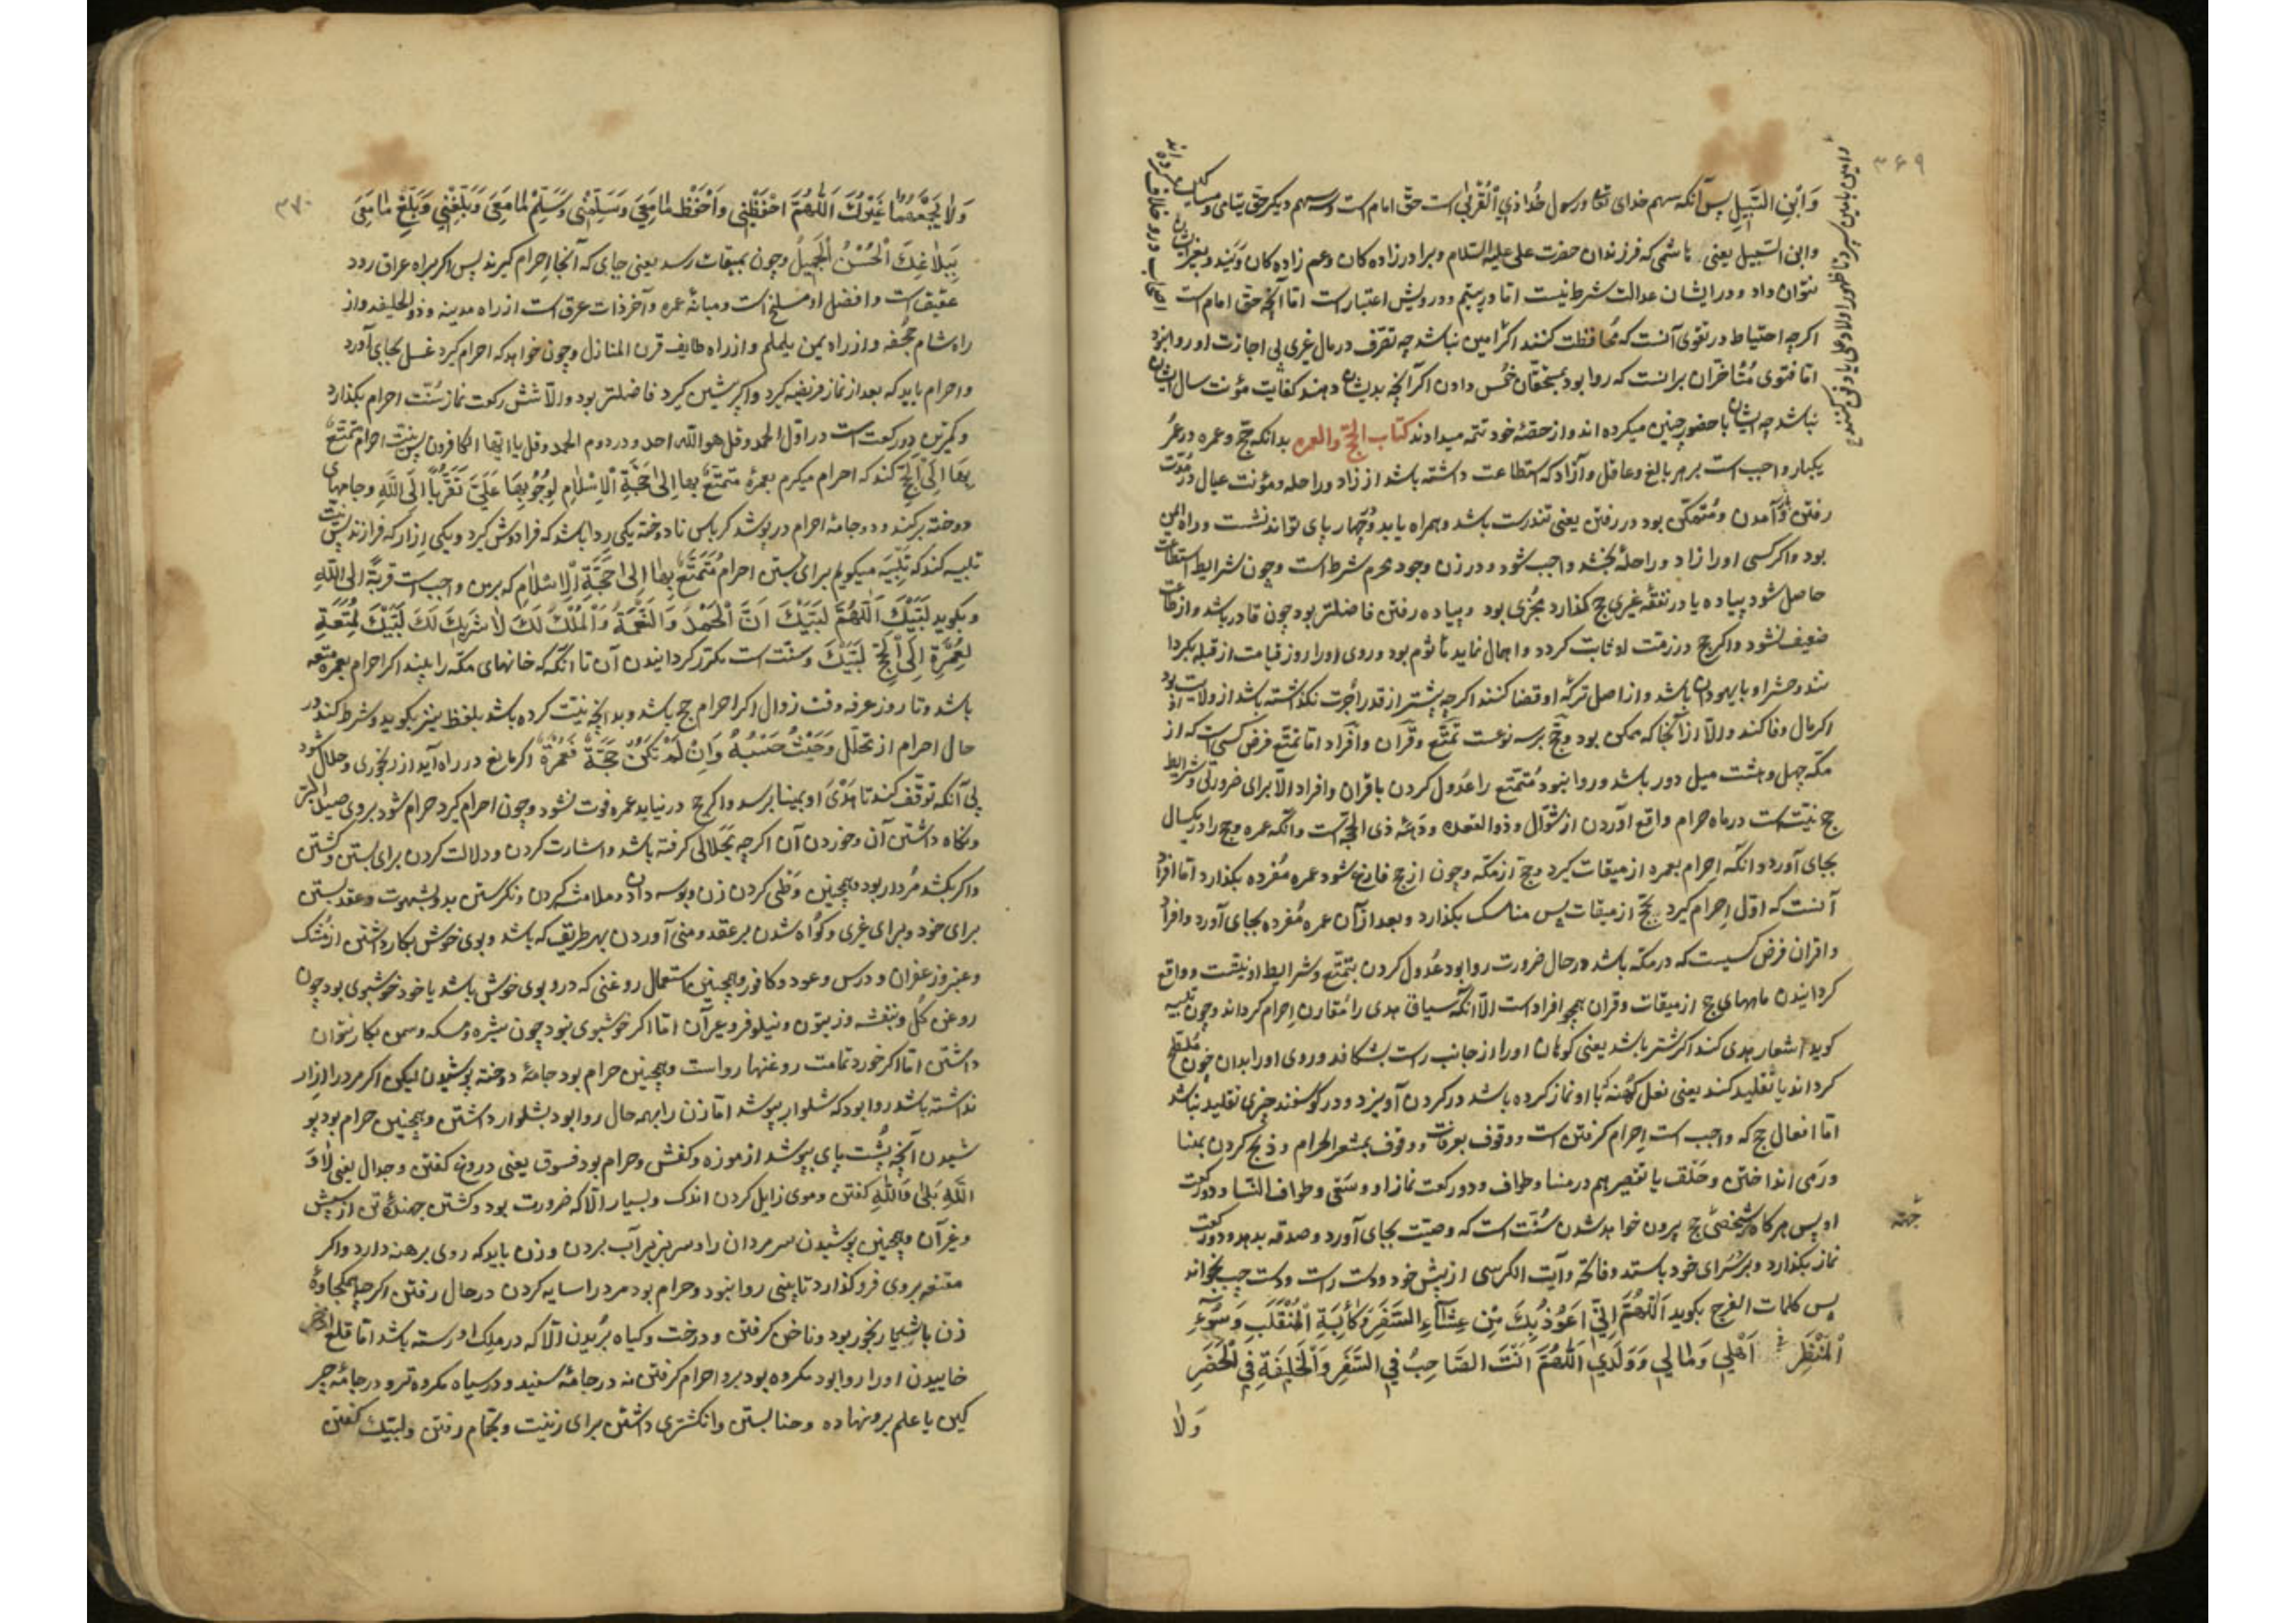 ۳۶۹
وَابْنِ السَّبیلِ پس آنکه سهم خدای تعالی و رسول خُدا و ذِی الْقُرْبٰی است حقّ امام است و سه سهم دیکر حق یتامی و مساکین
و ابن السّبیل یعنی هاشمی که فرزندان حضرت علی علیه السّلام و برادرزاده کان و عم زاده کان ویَند و بغیر ایشان
نتوان داد و در ایشان عدالت شرط نیست امّا در یتیم و درویش اعتبارست امّا آنچه حق امام است
اکرچه احتیاط در تقوی آنست که مُحافظت کنند اکر امین نباشد چه تصّرف در مال غیری بی اجازت او روا نبود
امّا فتوی مُتأخران برانست که روا بود بمستحقّان خُمس دادن اکر آنچه بدیشان دهند کفایت مؤنت سال ایشان
نباشد چه ایشان با حضور چنین میکرده اند و از حصّهٔ خود تتمه میدادند کتاب الحجّ والعمره بدانکه حجّ و عمره در عمُر
یکبار واجب است بر هر بالغ و عاقل و آزاد که استطاعت داشته باشد از زاد و راحله و مؤنت عیال در مُدّت
رفتن و آمدن و مُتمکّن بود در رفتن یعنی تندرست باشد و همراه یابد و چهارپای تواند نشست و راه ایمن
بود واکر کسی او را زاد و راحله بخشد واجب شود و در زن وجود محرم شرط است و چون شرایط استطاعت
حاصل شود پیاده یا در نفقهٔ غیری حج کذارد مجُزی بود و پیاده رفتن فاضلتر بود چون قادر باشد و از طاعت
ضعیف نشود واکر حج در ذمّت او ثابت کردد و اهمال نماید مأثوم بود و روی او را روز قیامت از قبله بکردا
نند و حشر او با یهودان باشد و از اصل ترکهٔ او قضا کنند اکرچه بیشتر از قدر اُجرت نکذاشته باشد از ولایت او
اکر مال وفا کند و الّا از آنجا که ممکن بود و حجّ بر سه نوعست تمتّع و قِران و اِفراد امّا تمتّع فرض کسی است که از
مکّه چهل و هشت میل دور باشد و روا نبود مُتمتّع را عدُول کردن باقران و افراد الّا برای ضرورتی و شرایط
حج نیّت است در ماه حرام واقع آوردن از شوّال و ذوالقعده و دَههٔ ذی الحجّه است و آنکه عمره و حج را در یکسال
بجای آورد و انکه اِحرام بعمره از میقات کیرد و حجّ از مکّه و چون از حج فارغ شود عمره مُفرده بکذارد امّا افراد
آنست که اوّل اِحرام کیرد بحَجّ از میقات پس مناسک بکذارد و بعد از آن عمره مُفرده بجای آورد و افراد
و اقران فرض کسیست که در مکّه باشد در حال ضرورت روا بود عُدول کردن بتمتّع و شرایط او نیّتست و واقع
کردانیدن ماههای حج از میقات و قران همچو افراد است الّا آنکه سیاق هدی را مُقارن اِحرام کرداند و چون تلبیه
کوید اشعار هدی کند اکر شتر باشد یعنی کوهان او را از جانب راست بشکافد و روی او را بدان خون مُلطّخ
کرداند یا تقلید کند یعنی نعل کهُنه که با او نماز کرده باشد در کردن آویزد و در کوسفند جزی تقلید نباشد
امّا افعال حج که واجب است اِحرام کرفتن است و وقوف بعرفات و وقوف بمشعر الحرام و ذبح کردن بمنا
و رَمی انداختن و حَلق یا تقصیر هم در منا و طواف و دو رکعت نماز او و سَعی و طواف النّسا و دو رکعت
او پس هر کاه شخصی بحج بیرون خواهد شدن سُنّت است که وصیّت بجای آورد و صدقه بدهد و دو رکعت
نماز بکذارد و بر در سَرای خود باستد و فاتحه و آیت الکرسی از پیش خود و دست راست و دست چپ بخواند
پس کلمات الفرج بکوید اَللّٰهُمَّ اِنّی اَعُوذُ بِكَ مِنْ وعْثاءِ السَّفَرِ وَ کَأبَةِ الْمُنْقَلَبِ وَ سُوءِ
الْمَنْظَرِ فی اَهْلی وَ مٰالی وَ وَلَدی اَللّٰهُمَّ اَنْتَ الصّاحِبُ فِی السَّفَرِ وَ الْخَلیفَةِ فِی الْحَضَرِ
وَلٰا
۳۷۰
وَلٰا یَجْمَعُهُمٰا غَیْرُكَ اَللّٰهُمَّ احْفَظْنی وَاحْفَظْ مٰا مَعِیَ وَ سَلِّمْنی وَ سَلِّمْ مٰا مَعِیَ وَ بَلِّغْنی وَ بَلِّغْ مٰا مَعِیَ
بِبَلٰاغِكَ الْحُسْنُ الْجَمیلُ و چون بمیقات رسد یعنی جایی که آنجا اِحرام کیرند پس اکر براه عراق رود
عقیق است و افضل او مسلخ است و میانهٔ غمره و آخر ذات عرق است از راه مدینه و ذوالحلیفه و از
راه شام جُحفه و از راه یمن یلملم و از راه طایف قرن المنازل و چون خواهد که احرام کیرد غسل بجای آورد
و احرام باید که بعد از نماز فریضه کیرد و اکر پیشین کیرد فاضلتر بود و الّا شش رکعت نماز سُنّت احرام بکذارد
و کمترین دو رکعت است در اوّل الحمد و قل هو اللّه احد و در دوم الحمد و قل یا ایّها الکافرون پس نیّت احرام تمتّع
بِهٰا اِلَی الْحَجّ کند که احرام میکرم بعمرهٔ متمتّع بِها اِلیٰ حَجَّةِ الْاِسْلٰامِ لِوُجُوبِهٰا عَلَیَّ تَقَرُّباً اِلَی اللّٰهِ و جامهای
دوخته برکند و دو جامهٔ احرام در پوشد کرباس نادوخته یکی ردا باشد که فرا دوش کیرد و یکی اِزار که فرا زند پس نیّت
تلبیه کند که تَلبیَه میکویم برای بستن احرام مُتَمتّع بِهٰا اِلیٰ حَجَّةِ الْاِسْلٰامِ که برمن واجب است قربةً اِلَی اللّٰهِ
و بکوید لَبَّیْكَ اَللّٰهُمَّ لَبَّیْكَ اِنَّ الْحَمْدَ وَ النِّعْمَةَ وَ الْمُلْكَ لَكَ لٰا شَریكَ لَكَ لَبَّیْكَ بِمُتْعَةِ
بِعُمْرَةٍ اِلَی الْحَجِّ لَبَّیْكَ و سنّت است مکرّر کردانیدن آن تا آنکه که خانهای مکّه را بیند اکر احرام بعمره متعه
باشد و تا روز عرفه وقت زوال اکر احرام حج باشد و بدانچه نیّت کرده باشد بلفظ نیز بکوید و شرط کند در
حال احرام از تحلّل وَ حَیْثُ حَبَسَهُ وَ اِنْ لَمْ تَکُنْ حَجَّةً فَعُمْرَةً اکر مانع در راه آید از رنجوری و حلال شود
بی آنکه توقّف کند تا هَدْیُ او بمِنا برسد و اکر حج در نیابد عمره فوت نشود و چون احرام کیرد حرام شود بروی صید البّر
و نکاه داشتن آن و خوردن آن اکرچه بَحَلالی کرفته باشد و اشارت کردن و دلالت کردن برای بستن و کشتن
و اکر بکشد مُردار بود و همچنین وَطی کردن زن و بوسه دادن و ملامسه کردن و نکرستن بدو بشهوت و عقد بستن
برای خود و برای غیری و کواه شدن بر عقد و منی آوردن بهر طریق که باشد و بوی خوش بکار داشتن از مُشک
و عنبر و زعفران و ورس و عود و کافور و همچنین استعمال روغنی که درو بوی خوش باشد یا خود خوشبوی بود چون
روغن کُل و بنفشه و زیتون و نیلوفر و غیر آن امّا اکر خوشبوی نبود چون شیره و مسکه و سمن بکار نتوان
داشتن امّا اکر خورد تمامت روغنها رواست و همچنین حرام بود جامهٔ دوخته پوشیدن لیکن اکر مرد را اِزار
نداشته باشد روا بود که شلوار بپوشد امّا زن را بهمه حال روا بود شلوار داشتن و همچنین حرام بود پو
شیدن آنچه پُشت پای بپوشد از موزه و کفش و حرام بود فسوق یعنی دروغ کفتن و جدال یعنی لٰا وَ
اللّٰهِ بَلیٰ وَ اللّٰهِ کفتن و موی زایل کردن اندک و بسیار الّا که ضرورت بود و کشتن جنبندهٔ تن از شپش
و غیر آن و همچنین پوشیدن سر مردان را و سر بزیر آب بردن و زن باید که روی برهنه دارد و اکر
مقنعه بروی فرو کذارد تا بینی روا نبود و حرام بود مرد را سایه کردن در حال رفتن اکرچه همکجاوهٔ
زن یا بیمار رنجور بود و ناخن کرفتن و درخت و کیاه بُریدن الّا که در ملِک او رسته باشد امّا قلع
خاییدن او را روا بود و مکروه بود برو احرام کرفتن نه در جامهٔ سفید و در سیاه مکروه تر و در جامهٔ چر
کین یا علم برو نهاده و حنا بستن و انکشتری داشتن برای زینت و بحمّام رفتن و لبّیك کفتن